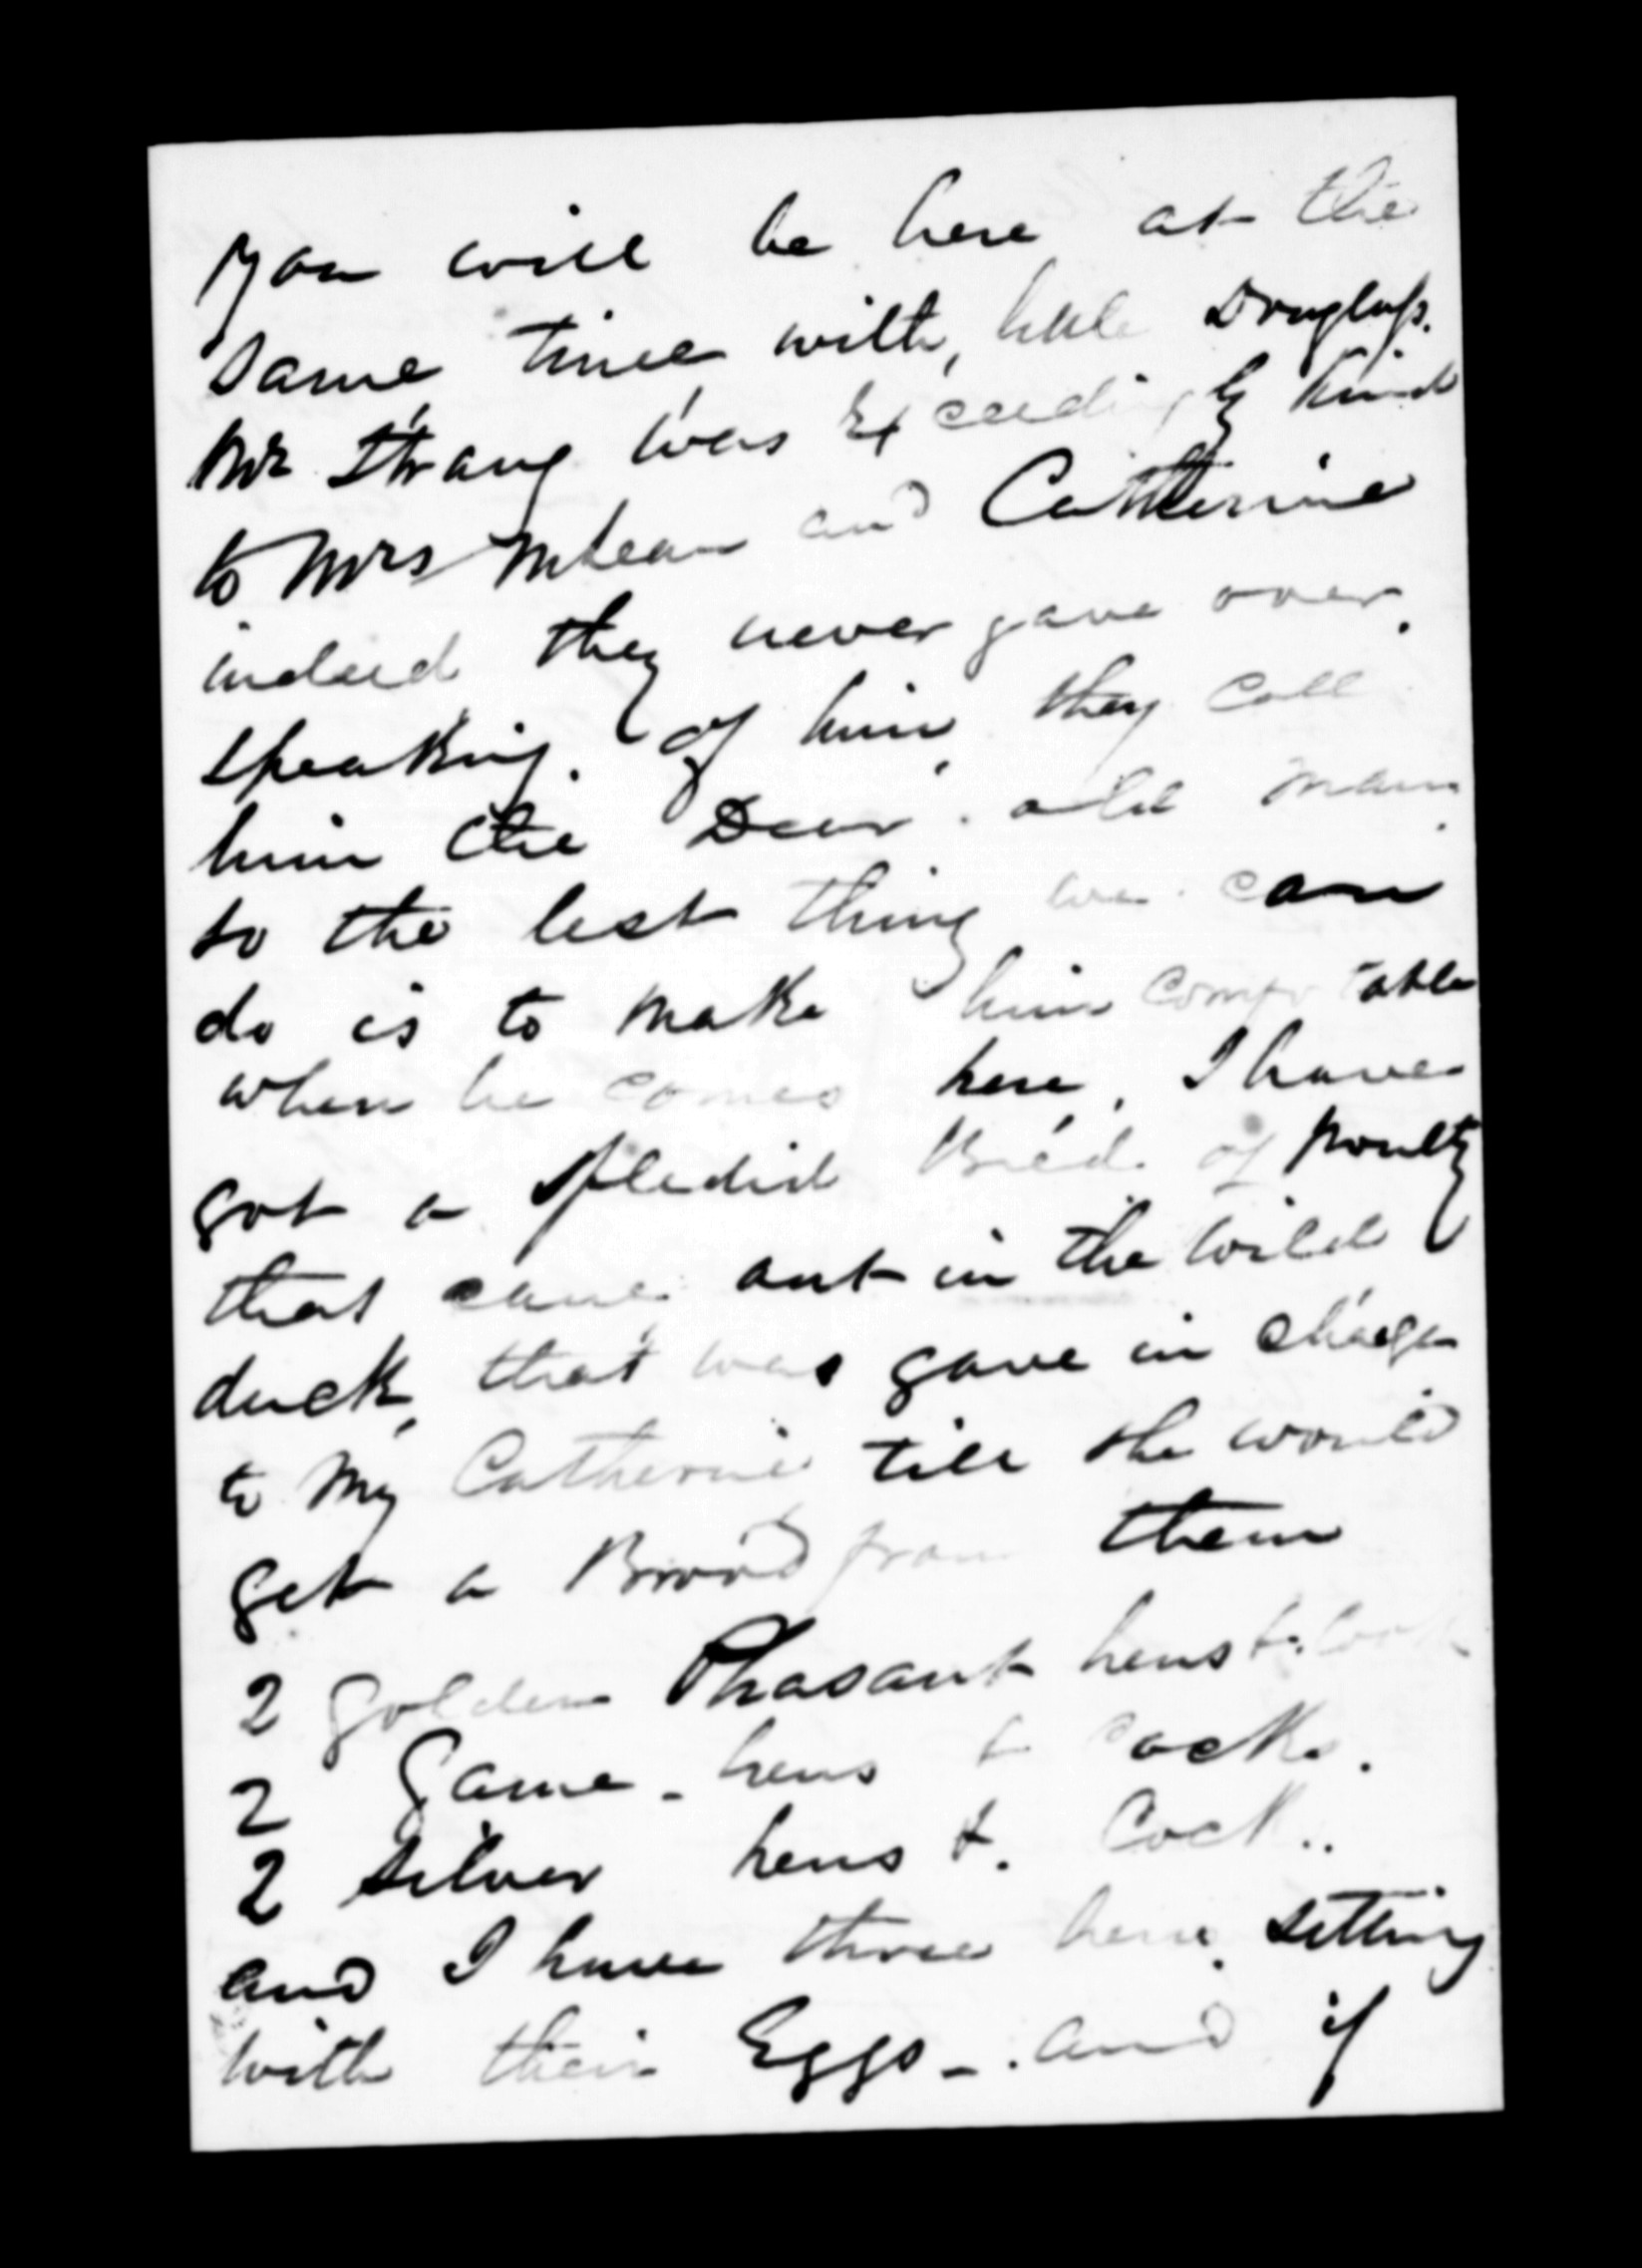 you will be here at the
same time with, little Douglass.
Mr Strang was Exceedingly kind
to Mrs McLean and Catherine
indeed they never gave over.
speaking. of him, they call
him the Dear. old man
so the lest thing we can
do is to make him comfortable
when he comes here, I have
got a spledid Breed. of poulty
that came out in the Wild
duck, that was gave in charge
to my Catherine till she would
get a Brood from them
2 golden Phasant hens & Cock
2 Game - hens & Cocks.
2 silver hens &. Cock..
and I have three hens. sitting
with their Eggs - . and if